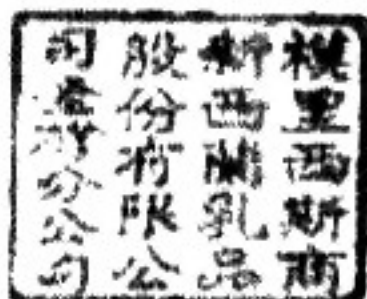 模里西斯商
新西蘭乳品
股份有限公
司台灣分公司